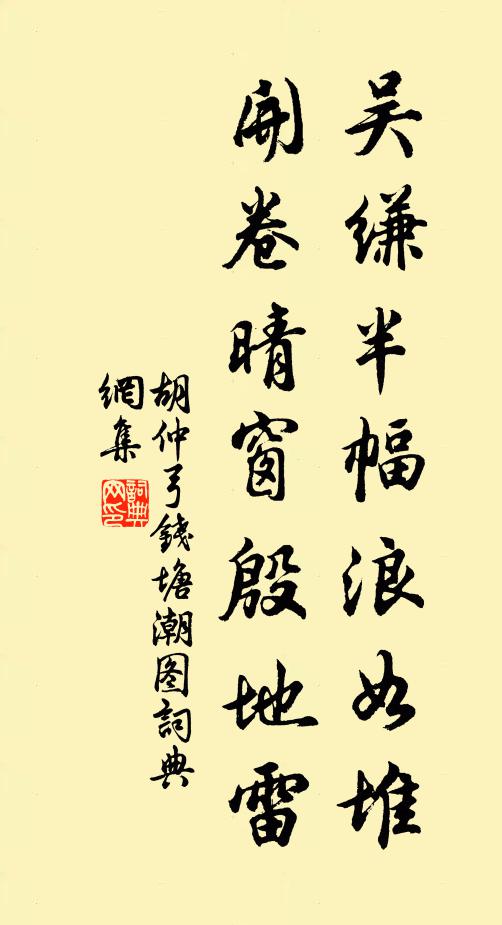 吴縑半幅浪如堆
開卷晴窗殷地雷
胡仲弓錢塘潮图詞典
網集
詞典网印